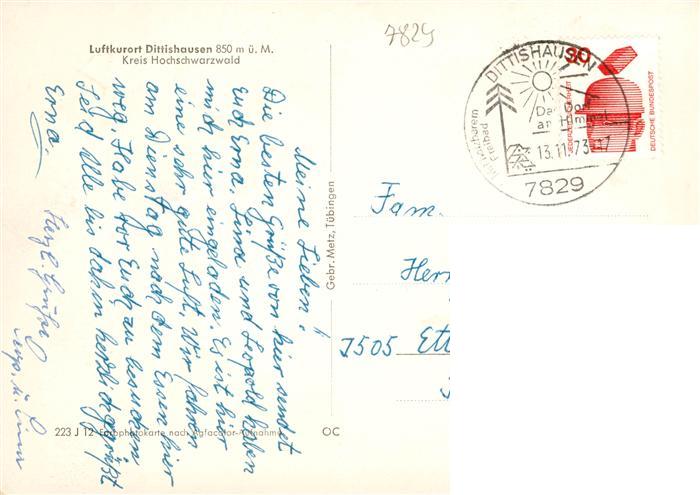 7829
Luftkurort Dittishausen 850 m ü. M.
Kreis Hochschwarzwald
Meine Lieben!
Die besten Grüße von hier sendet
Euch Erna. Line und Leopold haben
mich hier eingeladen. Es ist hier
eine sehr gute Luft. Wir fahren
am Dienstag nach dem Essen hier
weg. Habe vor Euch zu besuchen
Seid Alle bis dahin herzlich gegrüßt
Erna.
Herzl. Grüße
Leop. u. Line
223 J 12 Farbphotokarte nach Agfacolor-Aufnahme
OC
Gebr. Metz, Tübingen
DITTISHAUSEN
Das Dorf
am Himmel
Freibad
13.11.73-17
7829
30
DEUTSCHE BUNDESPOST
Fam.
Herm
7505 Ett